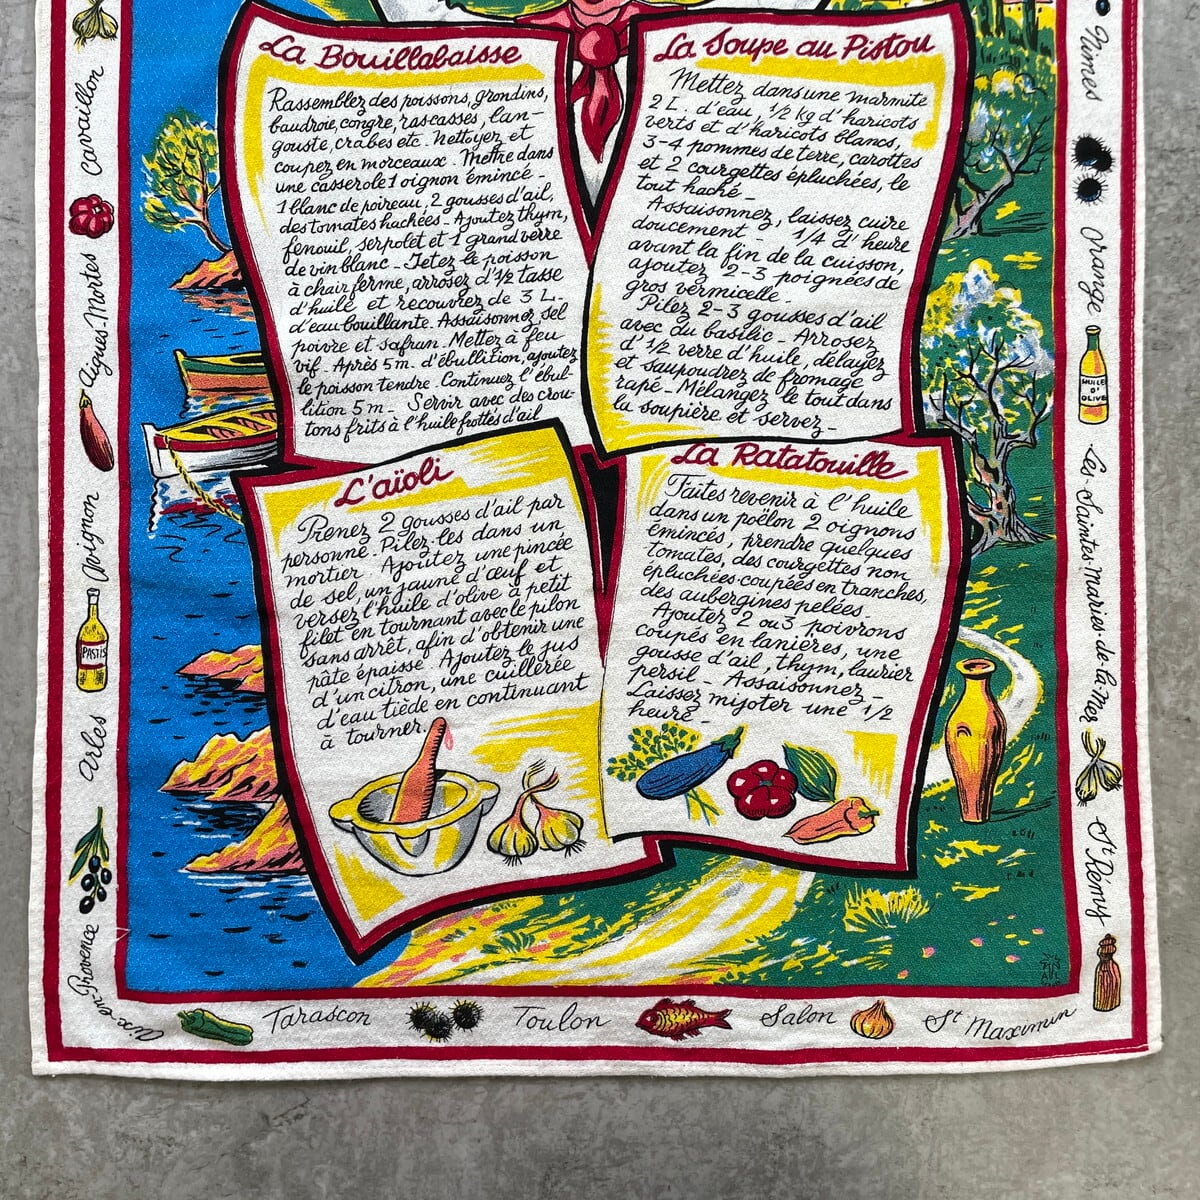 La Bouillabaisse
Rassemblez des poissons, grondins,
baudroie, congre, rascasses, lan-
gouste, crabes etc. Nettoyez et
coupez en morceaux. Mettre dans
une casserole 1 oignon émincé -
1 blanc de poireau, 2 gousses d'ail,
des tomates hachées - Ajoutez thym,
fenouil, serpolet et 1 grand verre
de vin blanc - Jetez le poisson
à chair ferme, arrosez d'1/2 tasse
d'huile et recouvrez de 3 L.
d'eau bouillante. Assaisonnez sel
poivre et safran. Mettez à feu
vif. Après 5 m. d'ébullition, ajoutez
le poisson tendre. Continuez l'ébul-
lition 5 m - Servir avec des crou-
tons frits à l'huile frottés d'ail
La Soupe au Pistou
Mettez dans une marmite
2 L. d'eau, 1/2 kg d'haricots
verts et d'haricots blancs,
3-4 pommes de terre, carottes
et 2 courgettes épluchées, le
tout haché -
Assaisonnez, laissez cuire
doucement - 1/4 d'heure
avant la fin de la cuisson,
ajoutez 2-3 poignées de
gros vermicelle -
Pilez 2-3 gousses d'ail
avec du basilic - Arrosez
d'1/2 verre d'huile, délayez
et saupoudrez de fromage
rapé - Mélangez le tout dans
la soupière et servez -
L'aïoli
Prenez 2 gousses d'ail par
personne. Pilez-les dans un
mortier. Ajoutez une pincée
de sel, un jaune d'œuf et
versez l'huile d'olive à petit
filet en tournant avec le pilon
sans arrêt, afin d'obtenir une
pâte épaisse. Ajoutez le jus
d'un citron, une cuillérée
d'eau tiède en continuant
à tourner.
La Ratatouille
Faites revenir à l'huile
dans un poëlon 2 oignons
émincés, prendre quelques
tomates, des courgettes non
épluchées coupées en tranches,
des aubergines pelées.
Ajoutez 2 ou 3 poivrons
coupés en lanières, une
gousse d'ail, thym, laurier
persil - Assaisonnez -
Laissez mijoter une 1/2
heure -
Cavaillon
Aigues-Mortes
Avignon
PASTIS
Arles
Aix-en-Provence
Tarascon
Toulon
Salon
St Maximin
Nimes
Orange
HUILE
D'
OLIVE
Les-Saintes-Maries-de-la-Mer
St Rémy